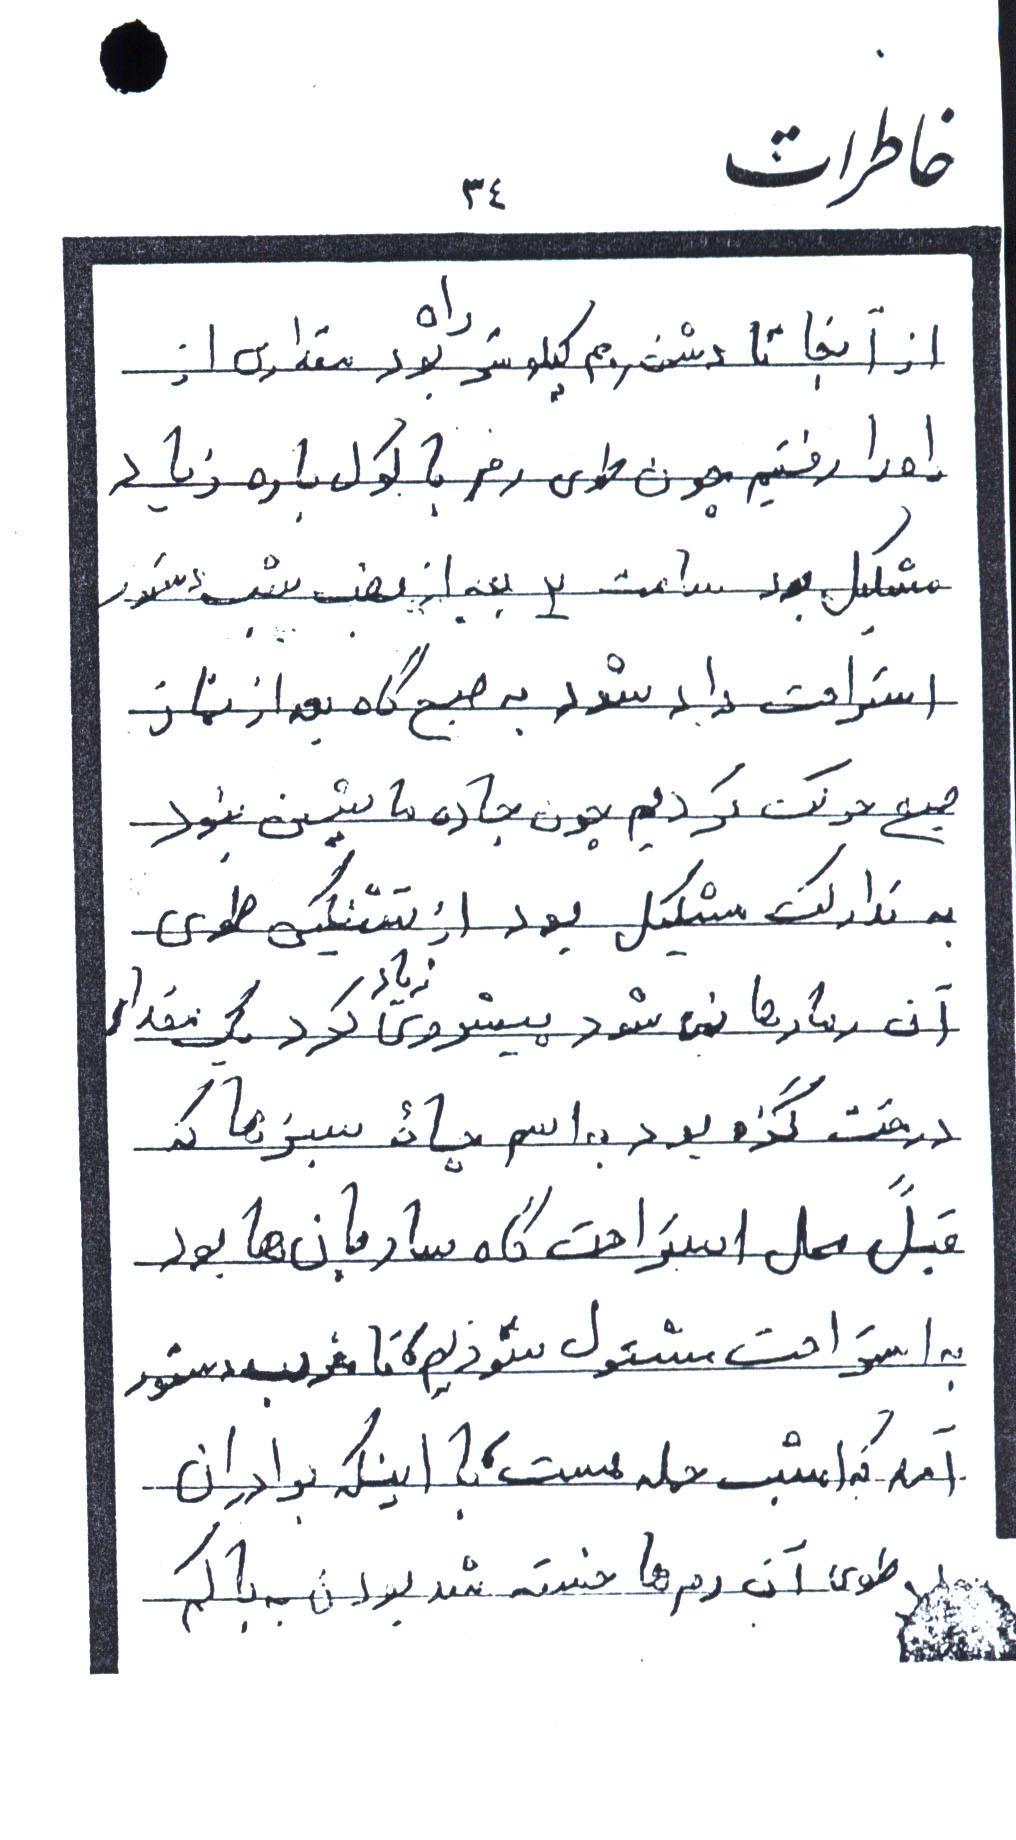 خاطرات
٣٤
از آنجا تا دشمن دهم کیلومتر راه بود مقداری از
راه را رفتیم چون طوی رمل با کول باره زیاد
مشکل بود ساعت ۲ بعد از نصف شب دستور
استراحت داد شود به صبح گاه بعد از نماز
صبح حرکت کردیم چون جاده ماشین نبود
به تدارکت مشکیل بود از تشنگی طوی
آن رملها نمی شود پیشروی زیاد کرد یک مقدار
درخت گزه بود به اسم میانه سبزها که
قبلً محل استراحت گاه سازمان ها بود
به استراحت مشغول شوذیم تا مغرب دستور
آمد که امشب حمله هست با اینکه برادران
طوی آن رمها خسته شد بودن به با کم